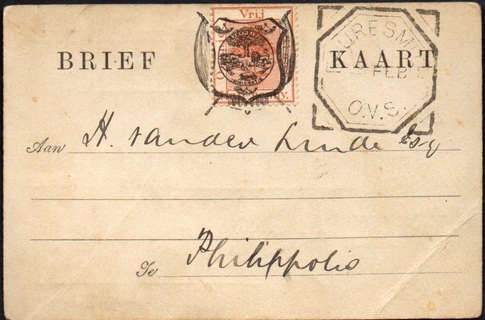 Vrij
BRIEF KAART
FAURESM
FEB
O.V.S.
Aan H. van der Linde Esq
Te Philippolis